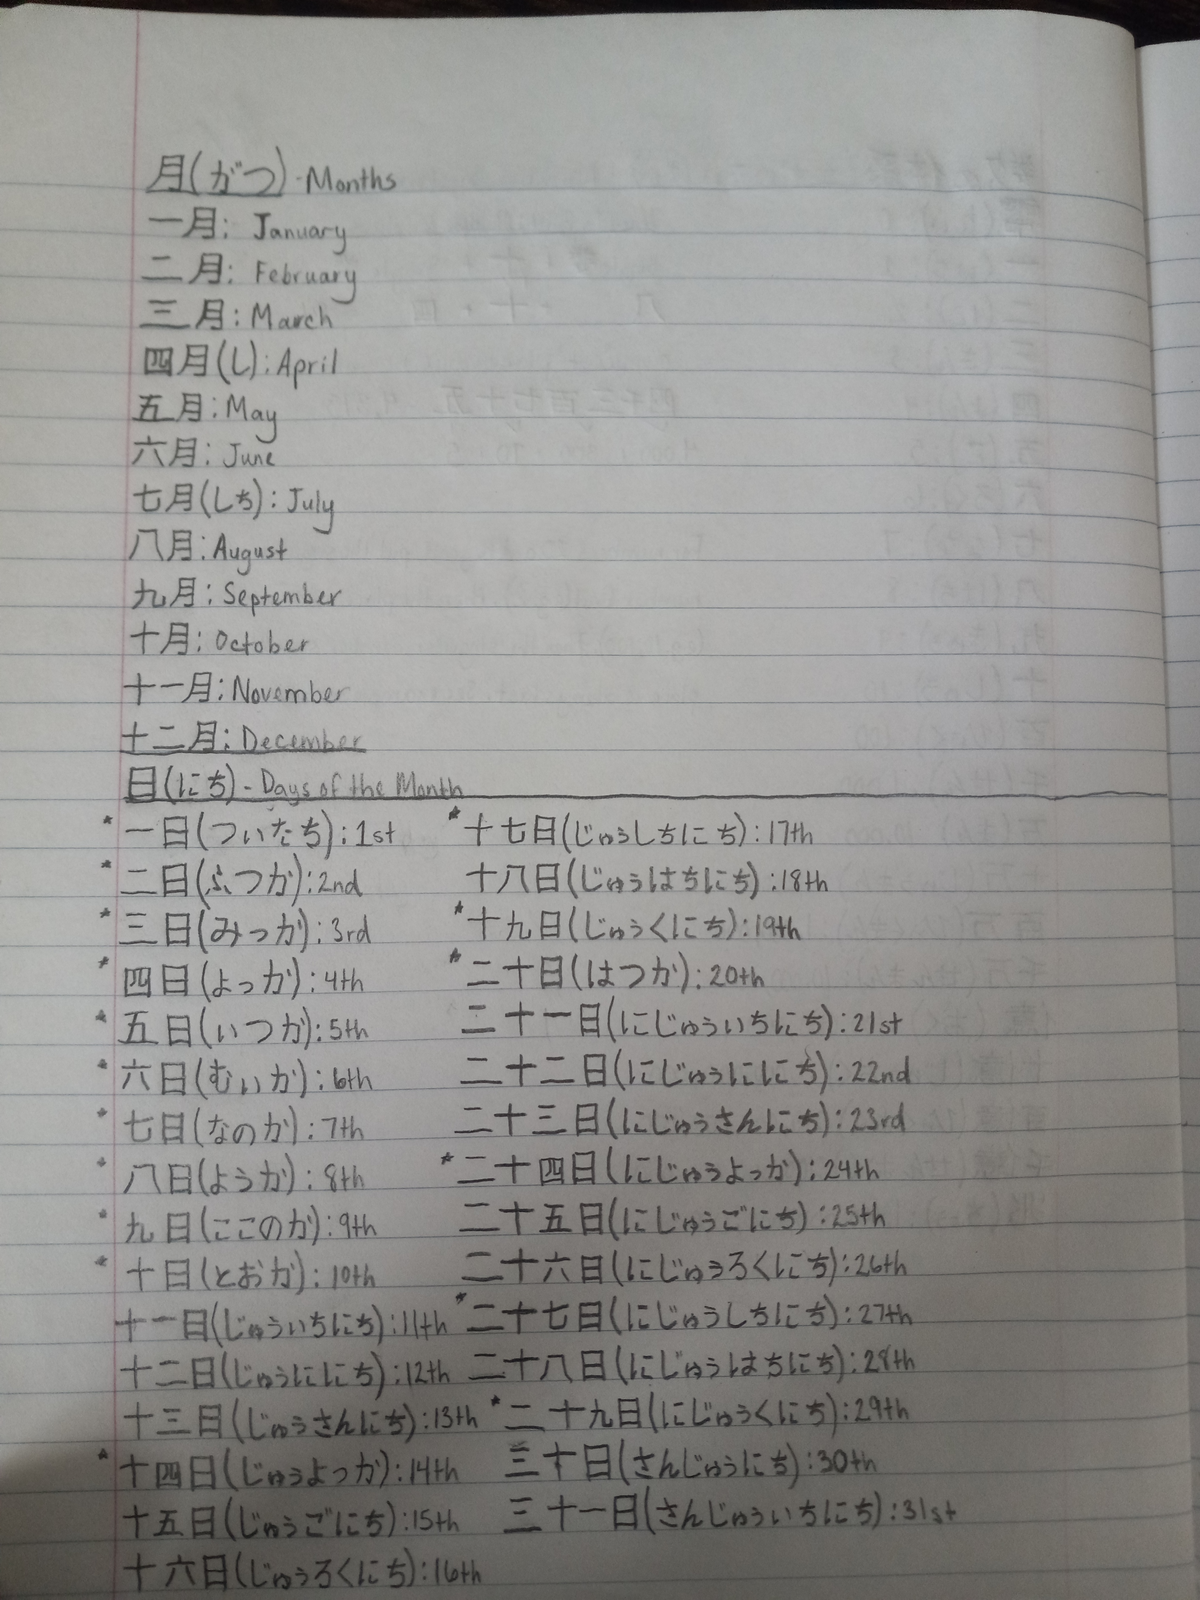 月(がつ)-Months
一月: January
二月: February
三月: March
四月(し): April
五月: May
六月: June
七月(しち): July
八月: August
九月: September
十月: October
十一月: November
十二月: December
日(にち)-Days of the Month
*一日(ついたち):1st
*二日(ふつか):2nd
*三日(みっか):3rd
*四日(よっか):4th
*五日(いつか):5th
*六日(むいか):6th
*七日(なのか):7th
*八日(ようか):8th
*九日(ここのか):9th
*十日(とおか):10th
十一日(じゅういちにち):11th
十二日(じゅうににち):12th
十三日(じゅうさんにち):13th
*十四日(じゅうよっか):14th
十五日(じゅうごにち):15th
十六日(じゅうろくにち):16th
*十七日(じゅうしちにち):17th
十八日(じゅうはちにち):18th
*十九日(じゅうくにち):19th
*二十日(はつか):20th
二十一日(にじゅういちにち):21st
二十二日(にじゅうににち):22nd
二十三日(にじゅうさんにち):23rd
*二十四日(にじゅうよっか):24th
二十五日(にじゅうごにち):25th
二十六日(にじゅうろくにち):26th
*二十七日(にじゅうしちにち):27th
二十八日(にじゅうはちにち):28th
*二十九日(にじゅうくにち):29th
三十日(さんじゅうにち):30th
三十一日(さんじゅういちにち):31st